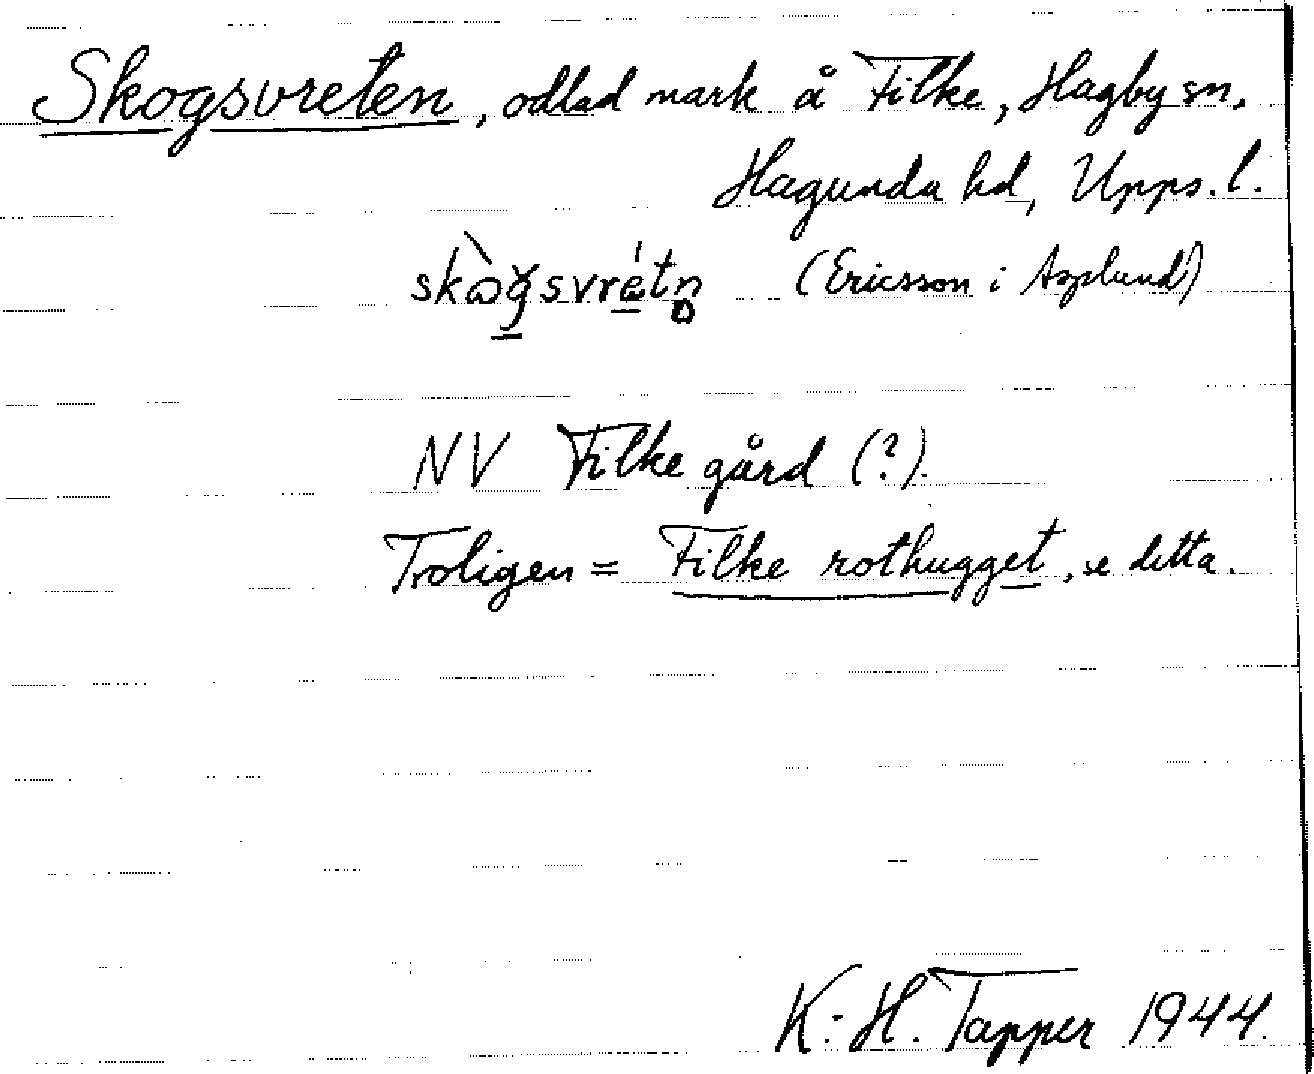 Skogsvreten, odlad mark å Filke, Hagby sn,
Hagunda hd, Upps. l.
skògsvrétn̥ (Ericsson i Asplund)
NV Filke gård (?).
Troligen = Filke rothugget, se detta.
K.-H. Tapper 1944.